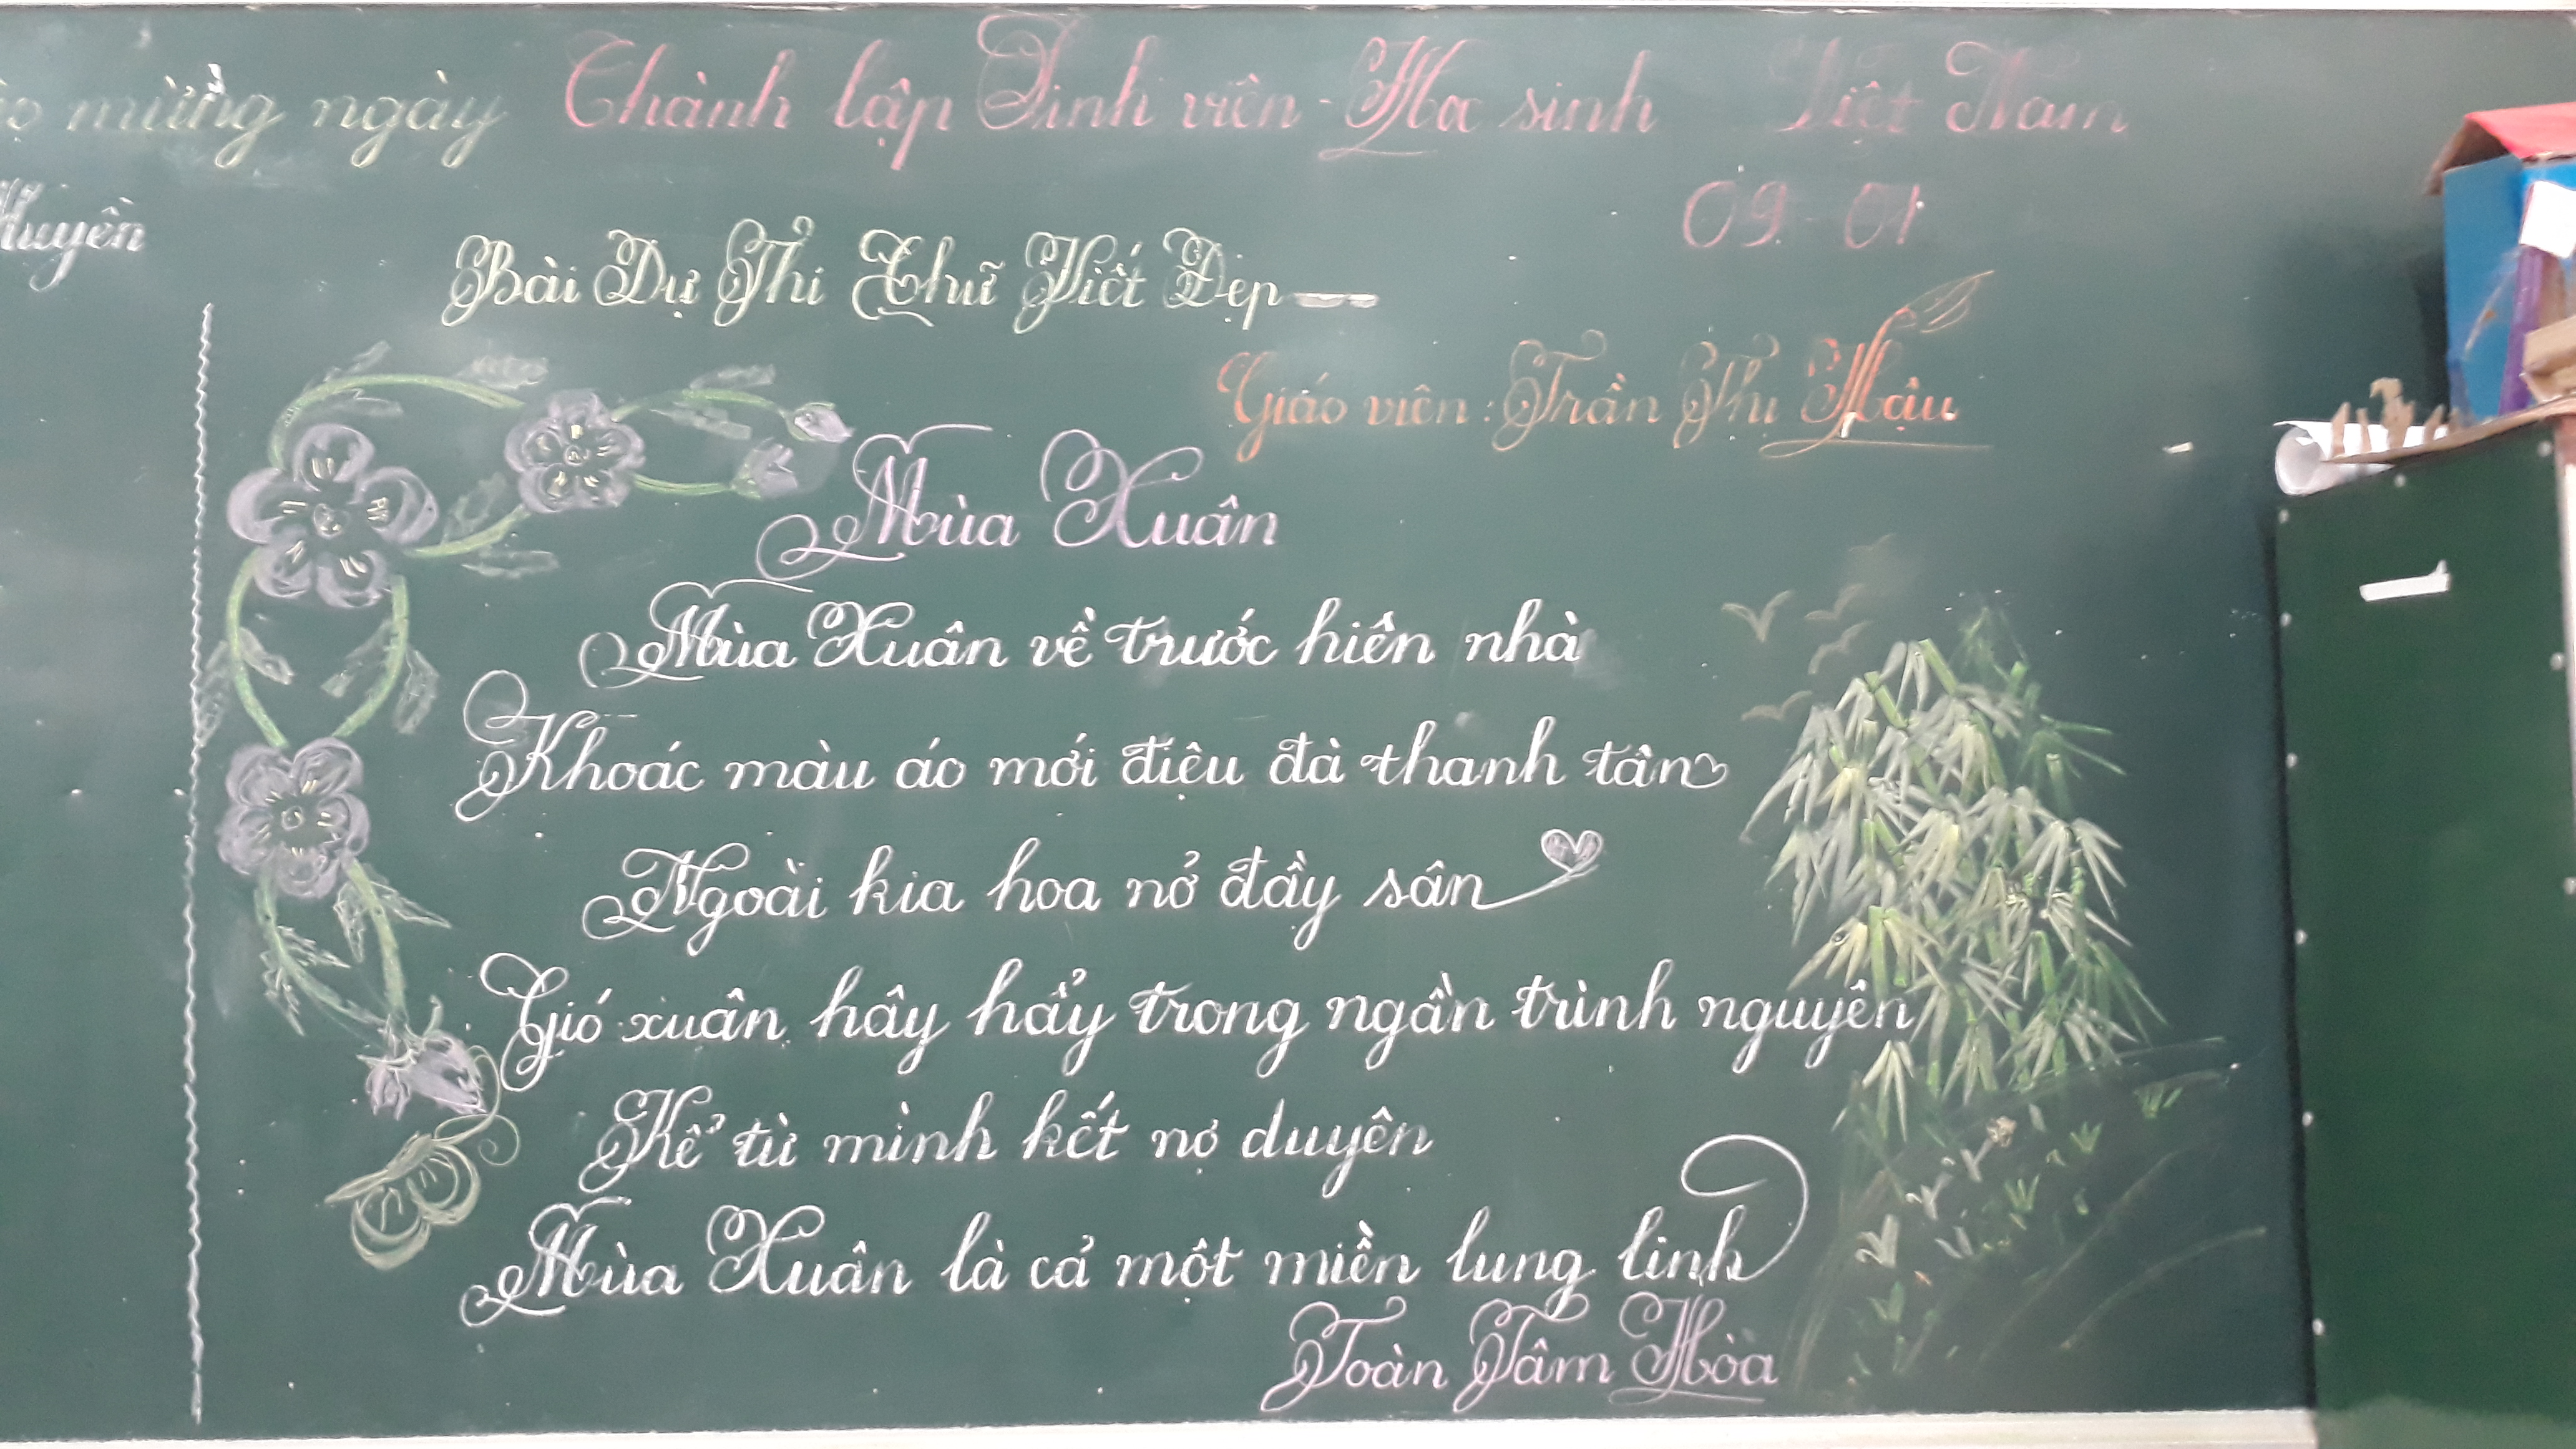 mừng ngày Thành lập Sinh viên - Học sinh Việt Nam
09-01
Huyền
Bài Dự Thi Chữ Viết Đẹp
Giáo viên: Trần Thị Hậu
Mùa Xuân
Mùa Xuân về trước hiên nhà
Khoác màu áo mới điệu đà thanh tân
Ngoài kia hoa nở đầy sân
Gió xuân hây hẩy trong ngần trình nguyên
Kể từ mình kết nợ duyên
Mùa Xuân là cả một miền lung linh
Toàn Tâm Hòa